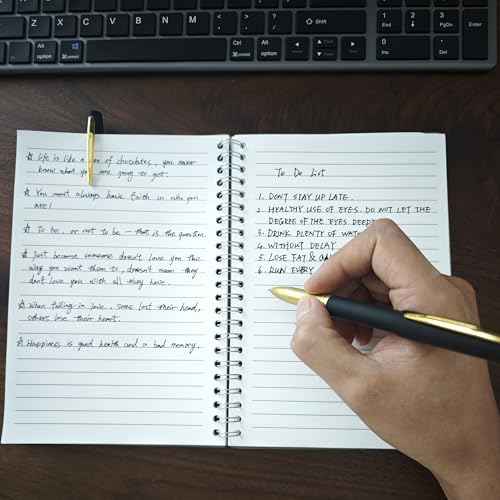 Z X C V B N M < , > . ? / ⇧ Shift 1 End 2 ↓ 3 PgDn Enter
Alt option Ctrl ⌘ Alt option 0 Ins . Del
☆ Life is like a of chocolates, you never
know what you are going to get.
☆ You must always have faith in who you
are!
☆ To be, or not to be — that is the question.
☆ Just because someone doesn't love you the
way you want them to, doesn't mean they
don't love you with all they have.
☆ When falling in love, some lost their head,
others lose their heart.
☆ Happiness is good health and a bad memory.
To Do List
1. DON'T STAY UP LATE.
2. HEALTHY USE OF EYES. DO NOT LET THE
DEGREE OF THE EYES
3. DRINK PLENTY OF
4. WITHOUT DELAY
5. LOSE FAT &
6. RUN EVERY